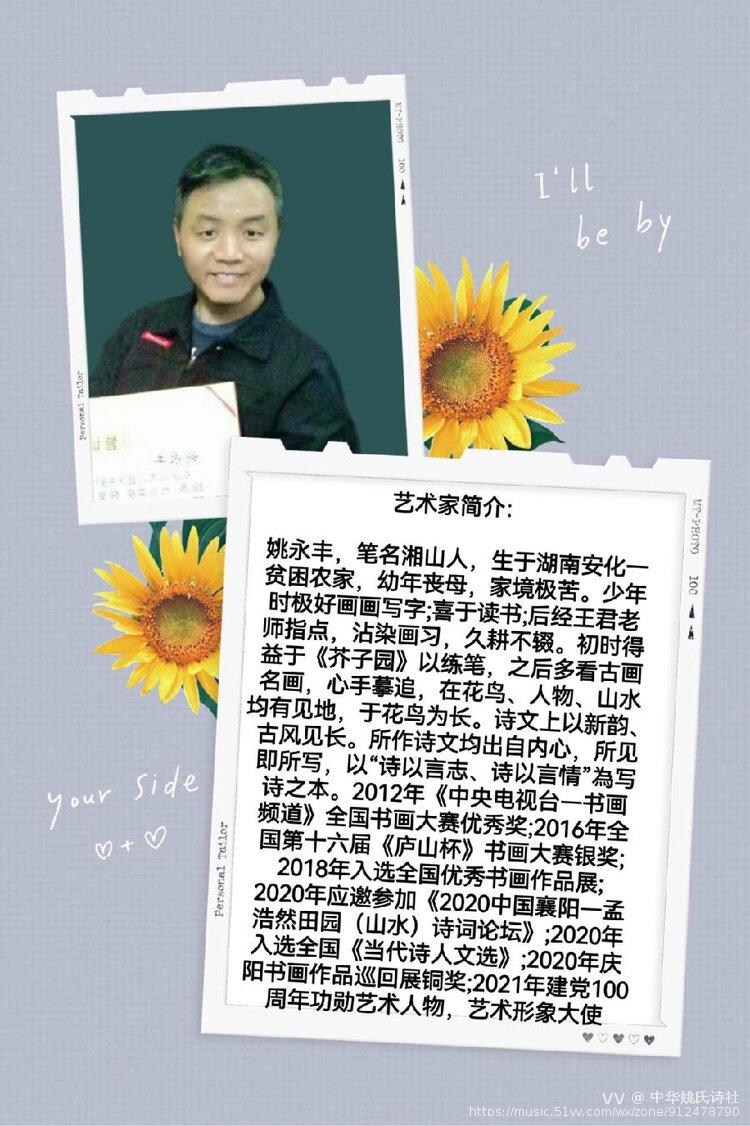 MT-PHOTO 100
I'll
be by
Personal Tailor
艺术家简介:
姚永丰，笔名湘山人，生于湖南安化一
贫困农家，幼年丧母，家境极苦。少年
时极好画画写字;喜于读书;后经王君老
师指点，沾染画习，久耕不辍。初时得
益于《芥子园》以练笔，之后多看古画
名画，心手摹追，在花鸟、人物、山水
均有见地，于花鸟为长。诗文上以新韵、
古风见长。所作诗文均出自内心，所见
即所写，以“诗以言志、诗以言情”為写
诗之本。2012年《中央电视台一书画
频道》全国书画大赛优秀奖;2016年全
国第十六届《庐山杯》书画大赛银奖;
2018年入选全国优秀书画作品展;
2020年应邀参加《2020中国襄阳一孟
浩然田园（山水）诗词论坛》;2020年
入选全国《当代诗人文选》;2020年庆
阳书画作品巡回展铜奖;2021年建党100
周年功勋艺术人物，艺术形象大使
MT-PHOTO 100
your side
Personal Tailor
VV @ 中华姚氏诗社
https://music.51vv.com/wx/zone/912478790